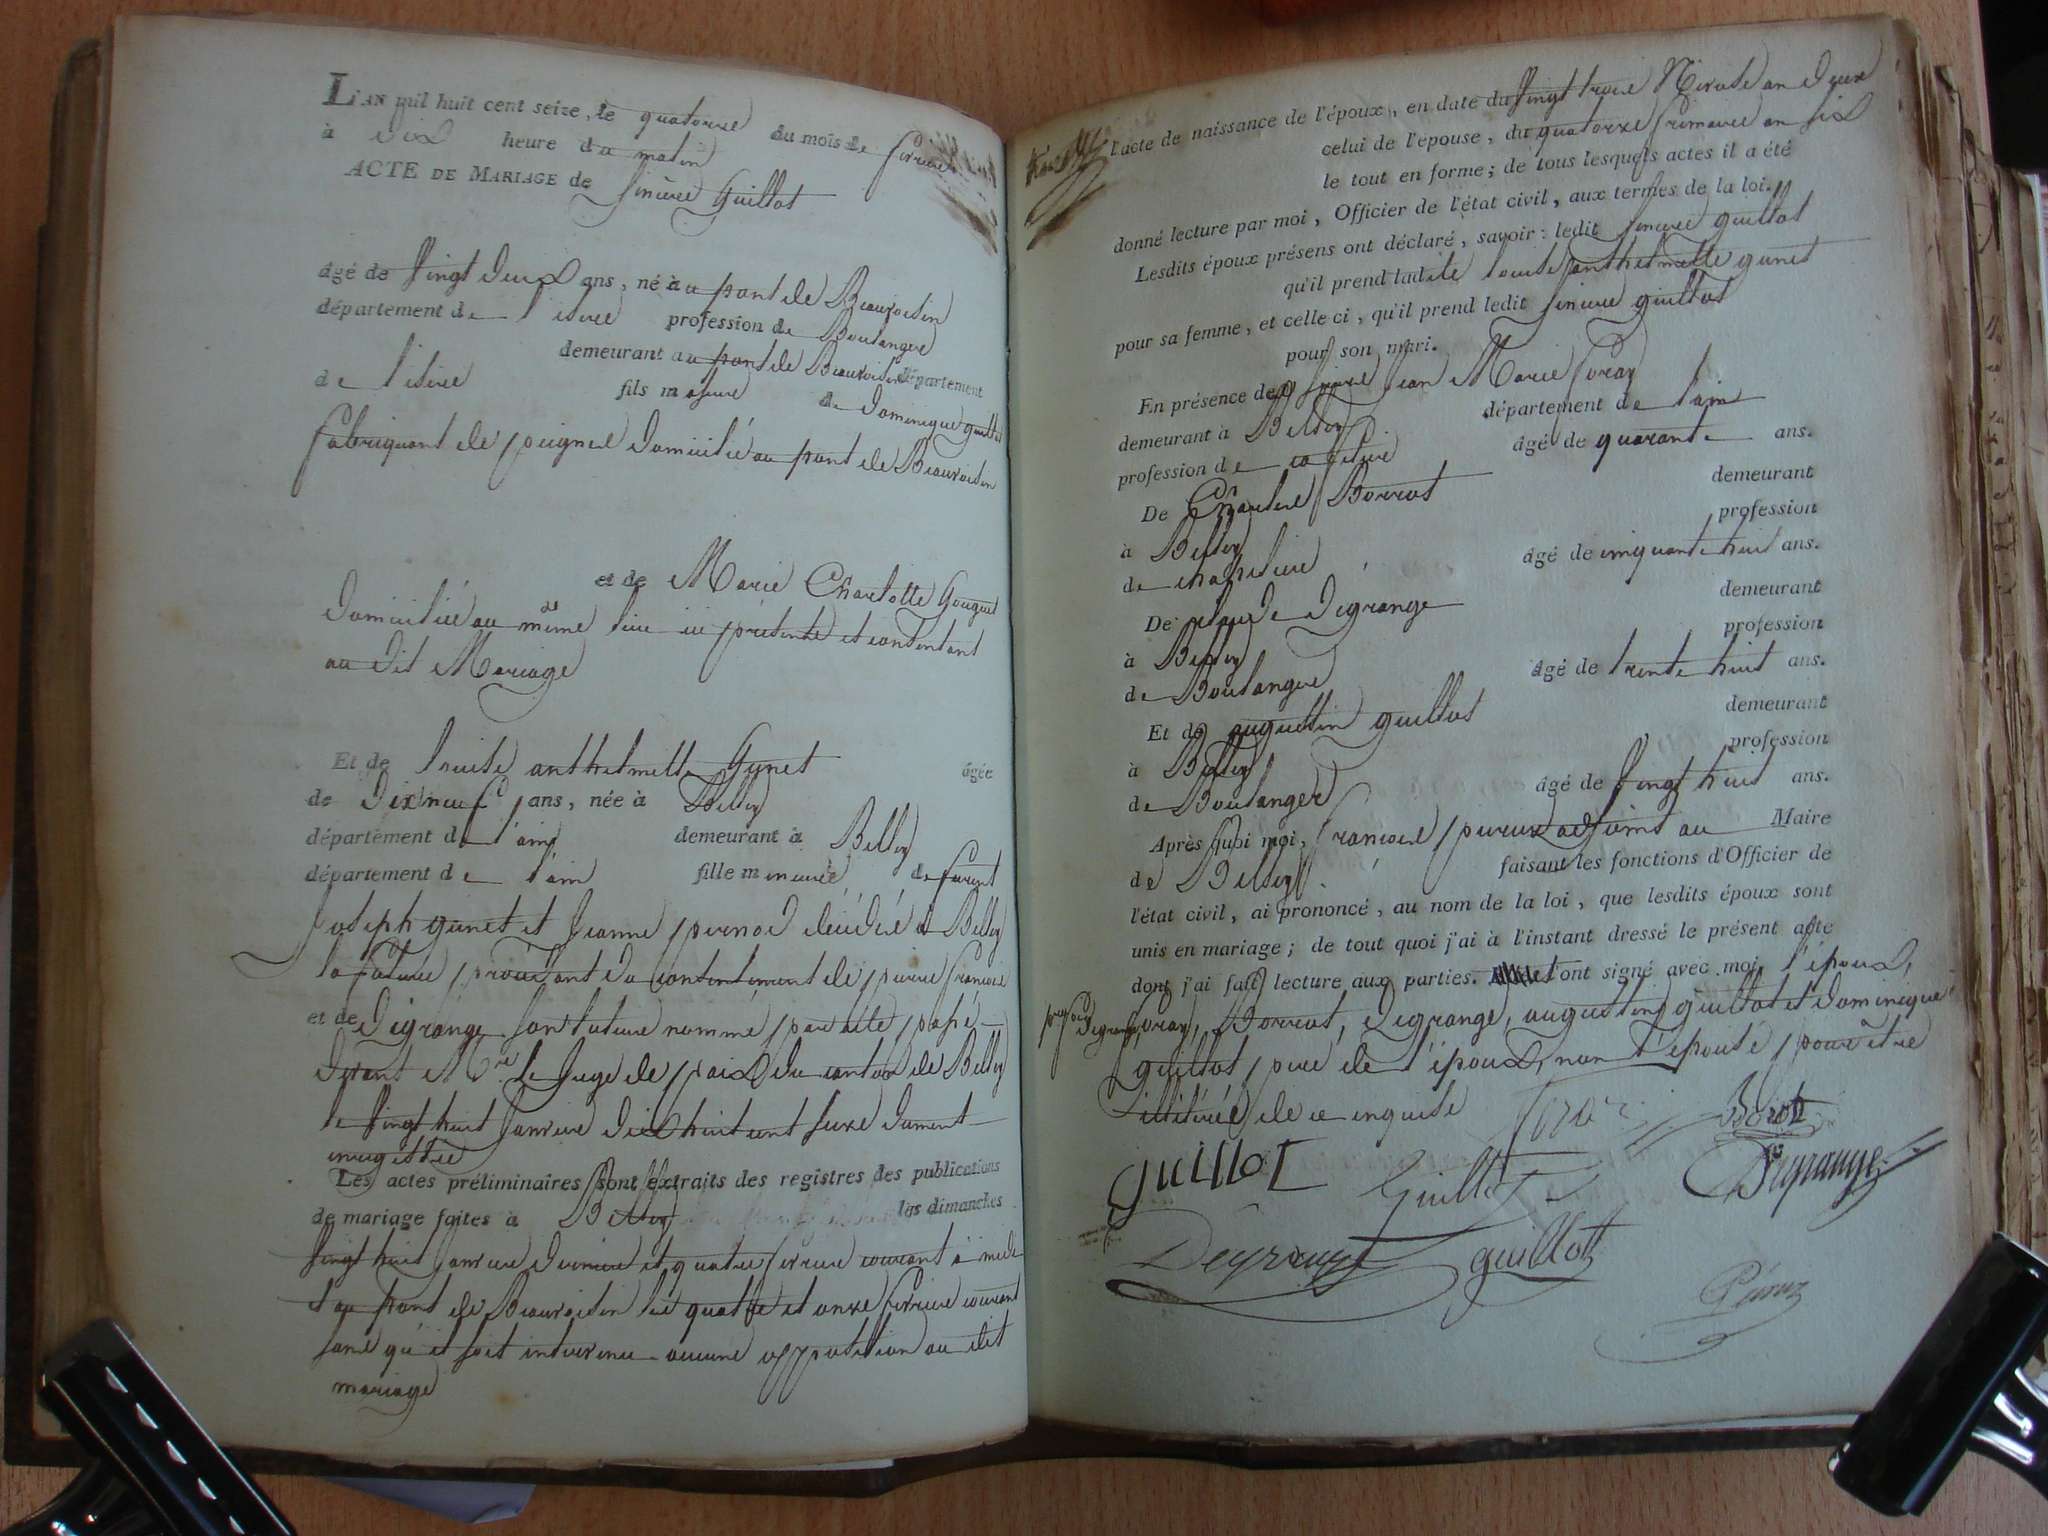 L'AN mil huit cent seize, le quatorze du mois de fevrier
à dix heure du matin
ACTE DE MARIAGE de Sincire Guillot
âgé de Vingt deux ans, né à au pont de Beauvoisin
département de l'isere profession de Boulanger
demeurant au pont de Beauvoisin département
de l'isere fils majeur de Dominique guillot
fabriquant de peignes Domicilié au pont de Beauvoisin
et de Marie Charlotte Gouguet
Domiciliée au même lieu ici présente et consentant
au dit Mariage
Et de Louise anthelmette Gunet âgée
de Dix neuf ans, née à Belley
département de l'ain demeurant à Belley
département de l'ain fille mineure de furent
Joseph gunet et Jeanne pernod décédés à Belley
la future procédant du consentement de pierre françois
et de Degrange son tuteur nommé par acte passé
devant Mr. le Juge de paix du canton de Belley
le vingt huit Janvier dix huit cent seize dument
enregistré
Les actes préliminaires sont extraits des registres des publications
de mariage faites à Belley les dimanches
vingt huit Janvier dernier et quatre fevrier courant à midi
et au pont de Beauvoisin les quatre et onze fevrier courant
sans qu'il soit intervenu aucune opposition au dit
mariage
l'acte de naissance de l'époux, en date du vingt trois Nivose an deux
celui de l'épouse, du quatorze frimaire an six
le tout en forme; de tous lesquels actes il a été
donné lecture par moi, Officier de l'état civil, aux termes de la loi.
Lesdits époux présens ont déclaré, savoir: ledit Sincire guillot
qu'il prend ladite Louise anthelmette gunet
pour sa femme, et celle ci, qu'il prend ledit Sincire guillot
pour son mari.
En présence de Jean Marie Foray
demeurant à Belley département de l'ain
profession de caffetier âgé de quarante ans.
De Charles Borrot demeurant
à Belley profession
de chapelier âgé de cinquante huit ans.
De claude Degrange demeurant
à Belley profession
de Boulanger âgé de trente huit ans.
Et de augustin guillot demeurant
à Belley profession
de Boulanger âgé de vingt huit ans.
Après quoi moi, françois peruz adjoint au Maire
de Belley faisant les fonctions d'Officier de
l'état civil, ai prononcé, au nom de la loi, que lesdits époux sont
unis en mariage; de tout quoi j'ai à l'instant dressé le présent acte
dont j'ai fait lecture aux parties. l'ont signé avec moi l'époux,
Degrange, foray, Borrot, Degrange, augustin guillot et Dominique
guillot père de l'époux, non l'épouse pour être
illitérée de ce enquise
Foray Borott
GUILLOT Guillot Degrange
Degrange guillot
Péruz